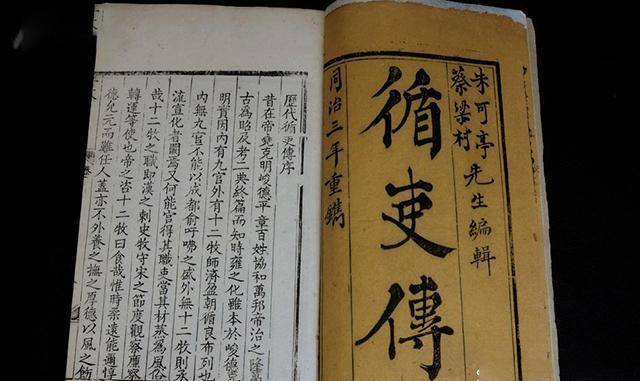 朱可亭
蔡梁村
先生編輯
循吏傳
同治三年重鐫
歷代循吏傳序
昔在帝堯克明峻德平章百姓協和萬邦帝治之隆
古為昭及考二典終篇而知時雍之化雖本於峻德
明實因內有九官外有十二牧師濟盈朝循良布列也
內無九官不能以成都俞吁咈之盛外無十二牧則承
流宣化者闕焉又何能官得其職吏當其材蒸為風俗
哉十二牧之職即漢之刺史牧守宋之節度觀察廉察
轉運等使也帝之咨十二牧曰食哉惟時柔遠能邇惇
德允元而難任人蓋亦不外養之撫之厚德以風之飭